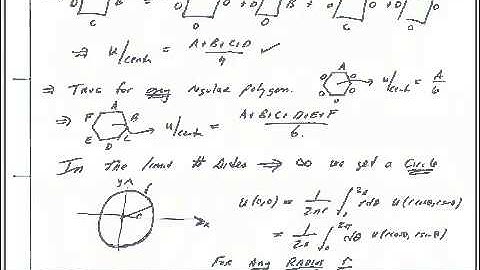 D B O O D O O B O O O O
D C O O O C O
⇒ u/center = A+B+C+D/4 ✓
⇒ True for any regular polygon. A O O O O O u/cent = A/6
⇒ F A B E D C u/center = A+B+C+D+E+F/6.
In the limit # sides ⇒ ∞ we get a Circle
y r x u(0,0) = 1/2πr ∫₀^2π r dθ u(r cosθ, r sinθ)
= 1/2π ∫₀^2π dθ u(r cosθ, r sinθ)
For Any Radius r